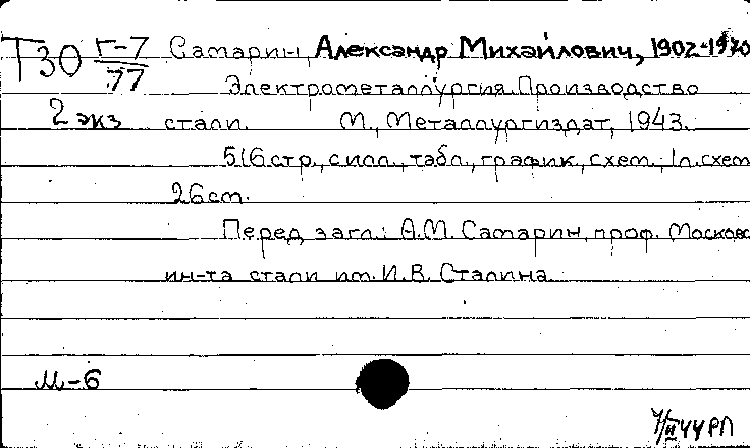 Т30 Г-7/77
Самарин, Александр Михайлович, 1902-1970
Электрометаллургия. Производство
2 экз
стали. М., Металлургиздат, 1943.
516 стр., с илл., табл., график., схем.; 1 л. схем
26 см.
Перед загл.: А.М. Самарин, проф. Москов
ин-та стали им. И.В. Сталина.
М-6
44 РП